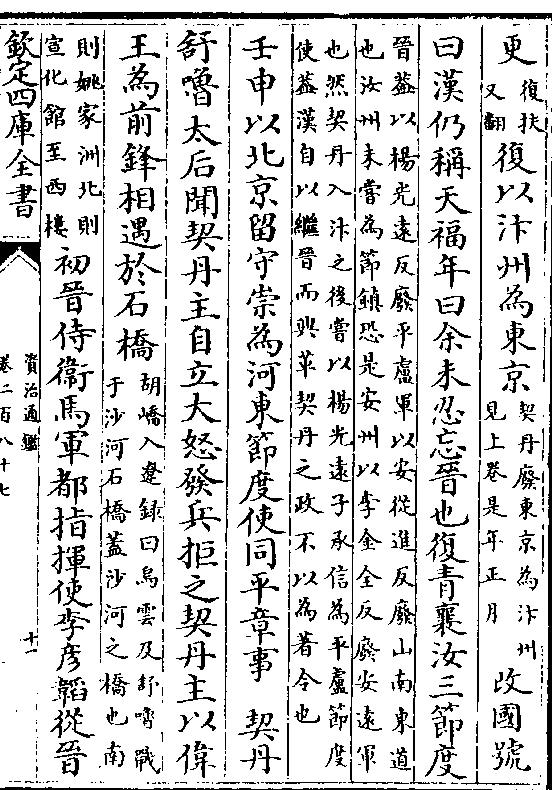 更復扶又翻復以汴州為東京契丹廢東京為汴州見上卷是年正月改國號
曰漢仍稱天福年曰余未忍忘晉也復青襄汝三節度
晉蓋以楊光遠反廢平盧軍以安從進反廢山南東道
也汝州未嘗為節鎮恐是安州以李金全反廢安遠軍
也然契丹入汴之後嘗以楊光遠子承信為平盧節度
使蓋漢自以繼晉而興革契丹之政不以為著令也
壬申以北京留守崇為河東節度使同平章事 契丹
舒嚕太后聞契丹主自立大怒發兵拒之契丹主以偉
王為前鋒相遇於石橋胡嶠入遼録曰烏雲及舒嚕戰于沙河石橋蓋沙河之橋也南
則姚家洲北則宣化館至西樓初晉侍衛馬軍都指揮使李彦韜從晉
欽定四庫全書
資治通鑑
卷二百八十七
十一